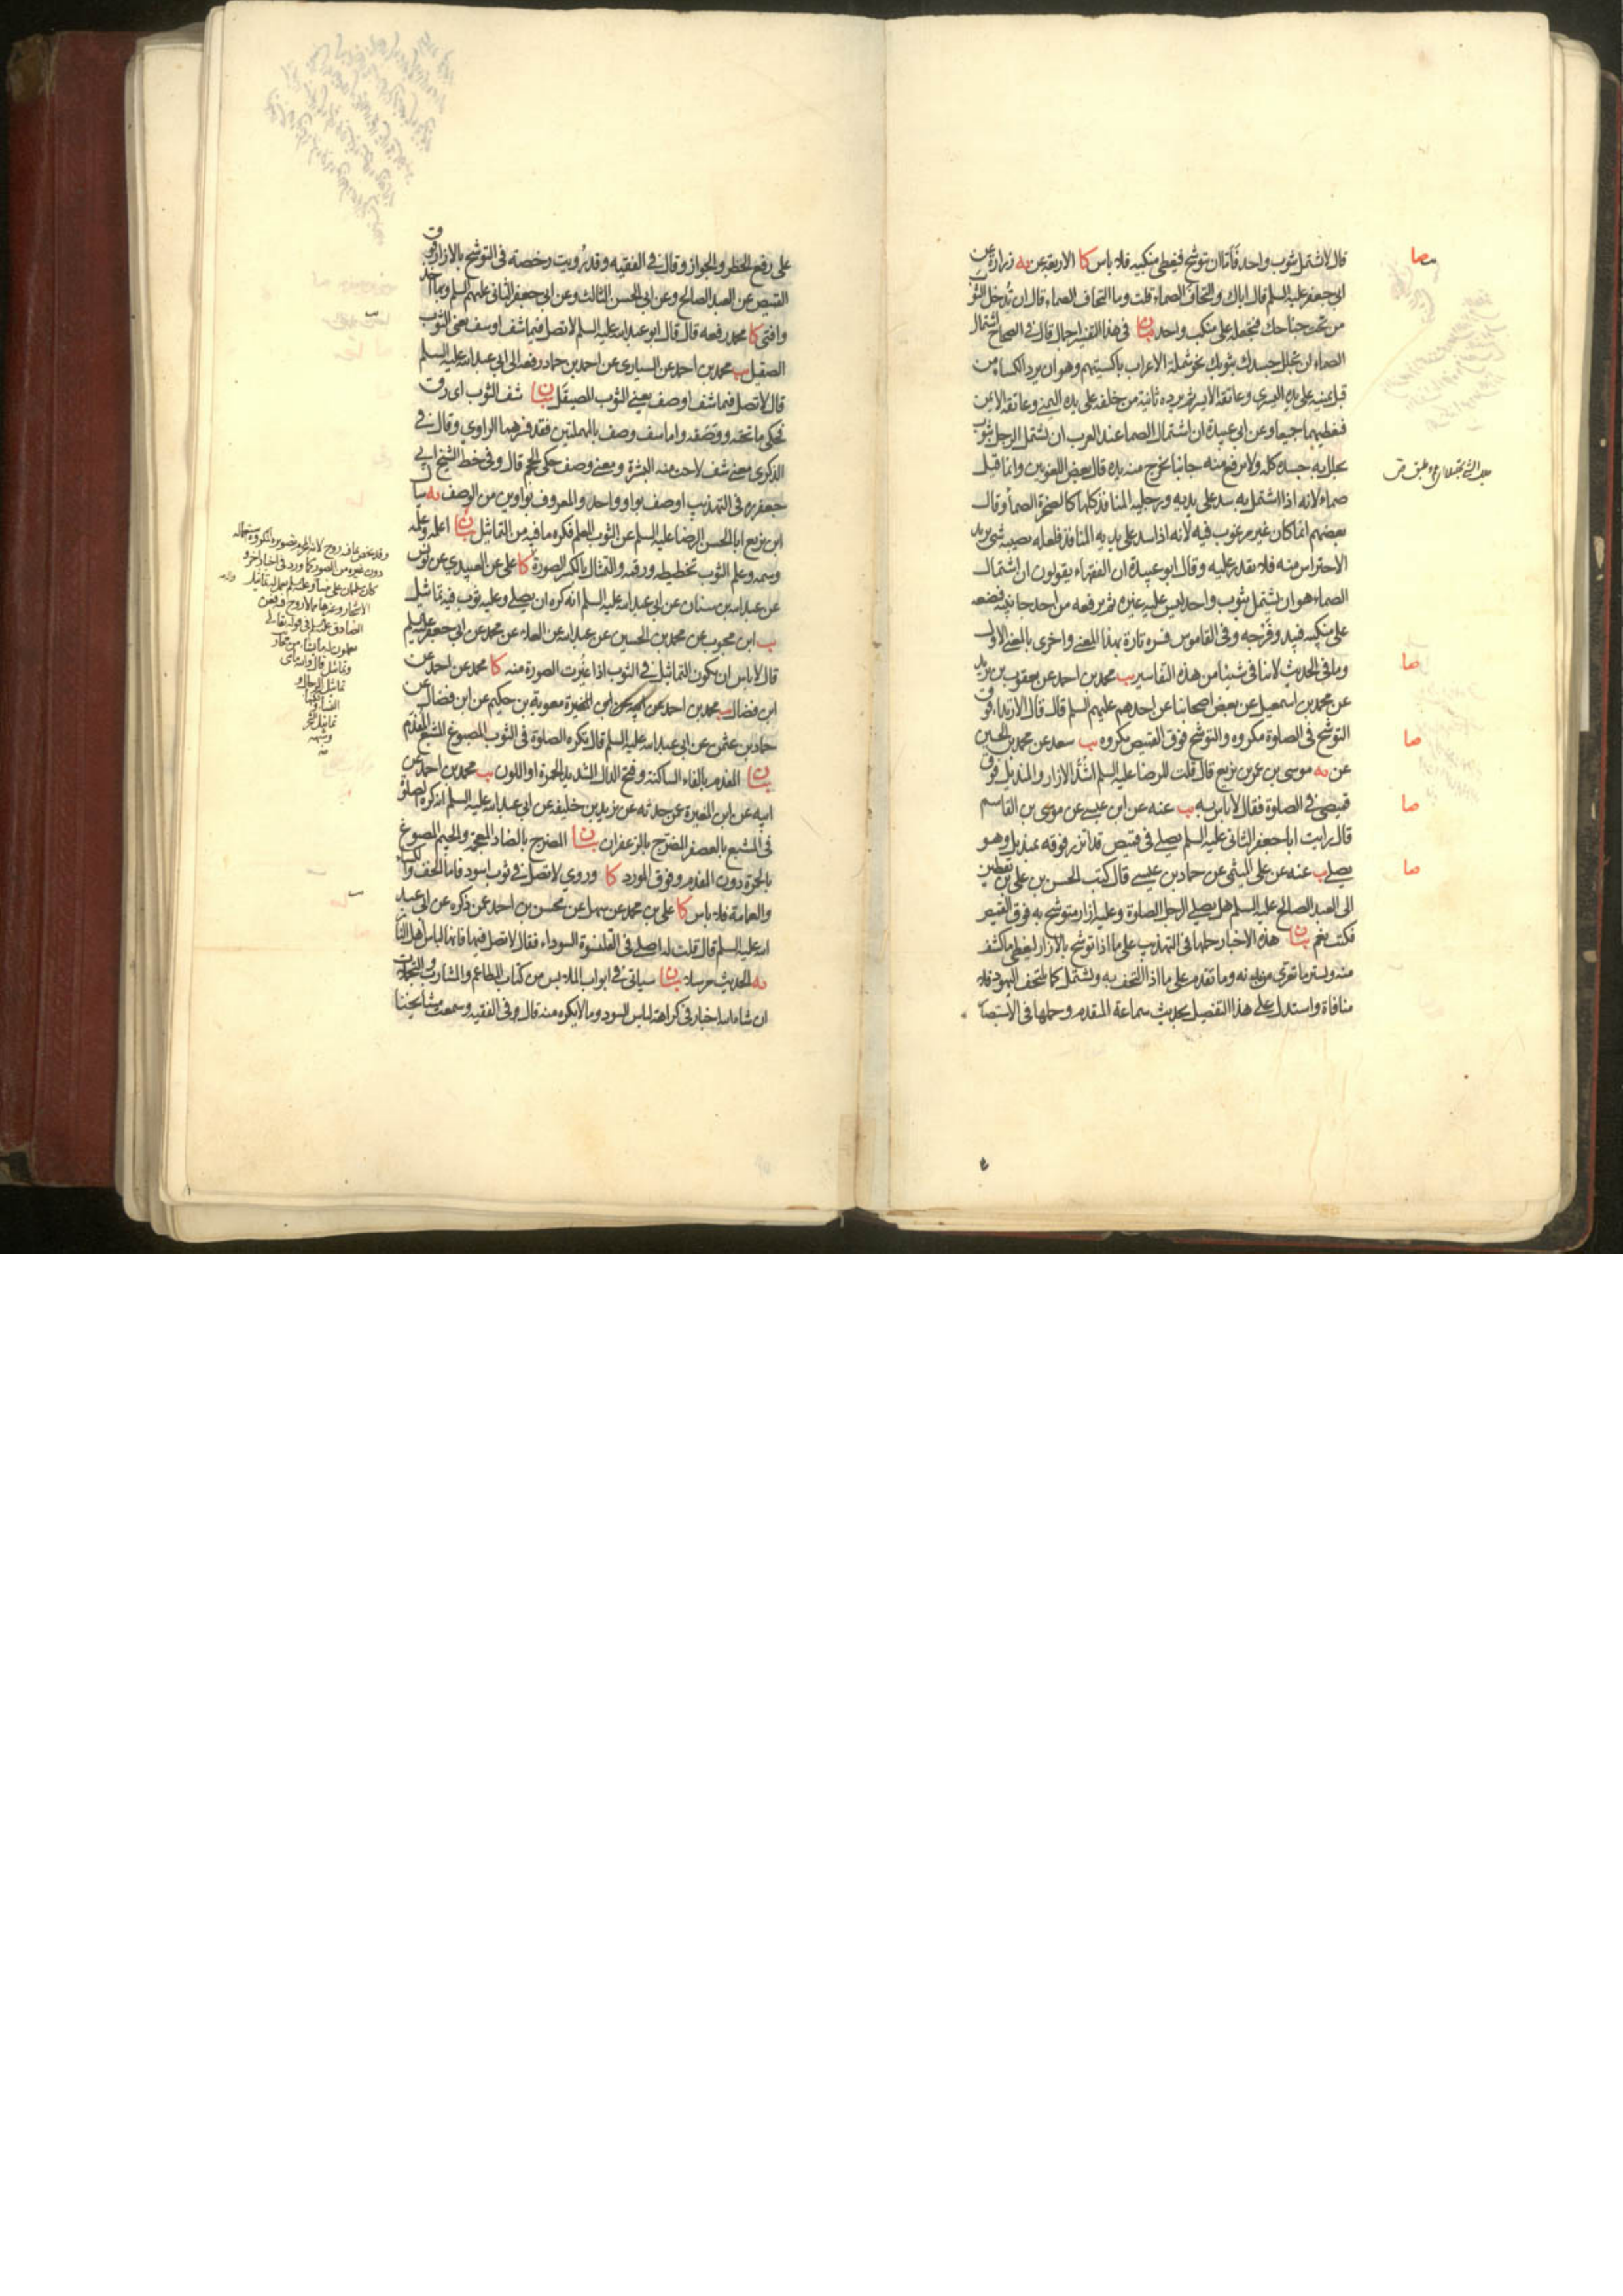 قال لا تشتمل بثوب واحد فأما ان تتوشح فيغطى منكبيه فلا باس كا الاربعة عن يه زرارة عن
ابى جعفر عليه السلم قال اياك والتحاف الصماء قلت وما التحاف الصماء قال ان تدخل الثوب
من تحت جناحك فتجعله على منكب واحد بيان فى هذا التفسير اجمال قال فى الصحاح اشتمال
الصماء ان تجلل جسدك بثوبك نحو شملة الاعراب باكسيتهم وهو ان يرد الكساء من
قبل يمينه على يده اليسرى وعاتقه الايسر ثم يرده ثانية من خلفه على يده اليمنى وعاتقه الايمن
فيغطيهما جميعا وعن ابى عبيدة ان اشتمال الصما عند العرب ان يشتمل الرجل بثوب
يجلل به جسده كله ولا يرفع منه جانبا يخرج منه يده قال بعض اللغويين وانما قيل
صماء لانه اذا اشتمل به سد على يديه ورجليه المنافذ كلها كالصخرة الصما وقال
بعضهم انما كان غير مرغوب فيه لانه اذا سد على يديه المنافذ فلعله يصيبه شئ يريد
الاحتراس منه فلا يقدر عليه وقال ابو عبيدة ان الفقهاء يقولون ان اشتمال
الصماء هو ان يشتمل بثوب واحد ليس عليه غيره ثم يرفعه من احد جانبيه فيضعه
على منكبيه فيبد وفرجه وفى القاموس فسره تارة بهذا المعنى واخرى بالمعنى الاول
وما فى الحديث لا ينافى شيئا من هذه التفاسير يب محمد بن احمد عن يعقوب بن يزيد
عن محمد بن اسمعيل عن بعض اصحابنا عن احدهم عليهم السلم قال قال الارتداء فوق
التوشح فى الصلوة مكروه والتوشح فوق القميص مكروه يب سعد عن محمد بن الحسين
عن يه موسى بن عمر بن بزيع قال قلت للرضا عليه السلم اشد الازار والمنديل فوق
قميصى فى الصلوة فقال لا باس به يب عنه عن ابن عيسى عن موسى بن القاسم
قال رايت ابا جعفر الثانى عليه السلم يصلى فى قميص قد اتزر فوقه بمنديل وهو
يصلى يب عنه عن على الميثمى عن حماد بن عيسى قال كتب الحسن بن على بن يقطين
الى العبد الصالح عليه السلم هل يصلى الرجل الصلوة وعليه ازار متوشح به فوق القميص
فكتب نعم بيان هذه الاخبار حملها فى التهذيب على ما اذا توشح بالازار ليغطى ما كشف
منه ويستر ما تعرى من بدنه وما تقدم على ما اذا التحف به ويشتمل كما يلتحف اليهود فلا
منافاة واستدل على هذا التفصيل بحديث سماعة المتقدم وحملها فى الاستبصا
صا
صا
صا
صا
على رفع الحظر والجواز وقال فى الفقيه وقد رويت رخصة فى التوشح بالازار فوق
القميص عن العبد الصالح وعن ابى الحسن الثالث وعن ابى جعفر الثانى عليهم السلم وبها اخذ
وافتى كا محمد رفعه قال قال ابو عبد الله عليه السلم لا تصل فيما شف او سف يعنى الثوب
الصقيل يب محمد بن احمد عن السيارى عن احمد بن حماد رفعه الى ابى عبد الله عليه السلم
قال لا تصل فيما شف او صف يعنى الثوب المصيقل بيان شف الثوب اى رق
فحكى ما تحته ووصفه واما سف وصف بالمهملتين فقد فسرهما الراوي وقال فى
الذكرى معنى شف لاحت منه البشرة ومعنى وصف حكى الحجم قال وفى خط الشيخ ابى
جعفر ره فى التهذيب او صف بواو واحد والمعروف بواوين من الوصف يه سأل
ابن بزيع ابا الحسن الرضا عليه السلم عن الثوب المعلم فكره ما فيه من التماثيل بيان اعلمه وعلمه
وسمه وعلم الثوب تخطيطه ورقمه والتمثال بالكسر الصورة كا على عن العبيدى عن يونس
عن عبد الله بن سنان عن ابى عبد الله عليه السلم انه كره ان يصلى وعليه ثوب فيه تماثيل
يب ابن محبوب عن محمد بن الحسين عن عبد الله عن العلاء عن محمد عن ابى جعفر عليه السلم
قال لا باس ان يكون التماثيل فى الثوب اذا غيرت الصورة منه كا محمد عن احمد عن
ابن فضال يب محمد بن احمد عن ابى المغيرة معوية بن حكيم عن ابن فضال عن
حماد بن عثمن عن ابى عبد الله عليه السلم قال تكره الصلوة فى الثوب المصبوغ المشبع المفدم
بيان المفدم بالفاء الساكنة وفتح الدال الشديد الحمرة او اللون يب محمد بن احمد عن
ابيه عن ابن المغيرة عن حدثه عن يزيد بن خليفة عن ابى عبد الله عليه السلم انه كره الصلوة
فى المشبع بالعصفر المضرج بالزعفران بيان المضرج بالضاد المعجمة والجيم المصبوغ
بالحمرة دون المفدم وفوق المورد كا وروي لا تصل فى ثوب اسود فاما الخف والكساء
والعمامة فلا باس كا على بن محمد عن سهل عن محسن بن احمد عمن ذكره عن ابى عبد
الله عليه السلم قال قلت له اصلى فى القلنسوة السوداء فقال لا تصل فيها فانها لباس اهل النار
يه الحديث مرسلا بيان سياتى فى ابواب الملابس من كتاب المطاعم والمشارب والتجملات
ان شاء الله اخبار فى كراهة لباس السود وما لا يكره منه قال وفى الفقيه وسمعت مشايخنا